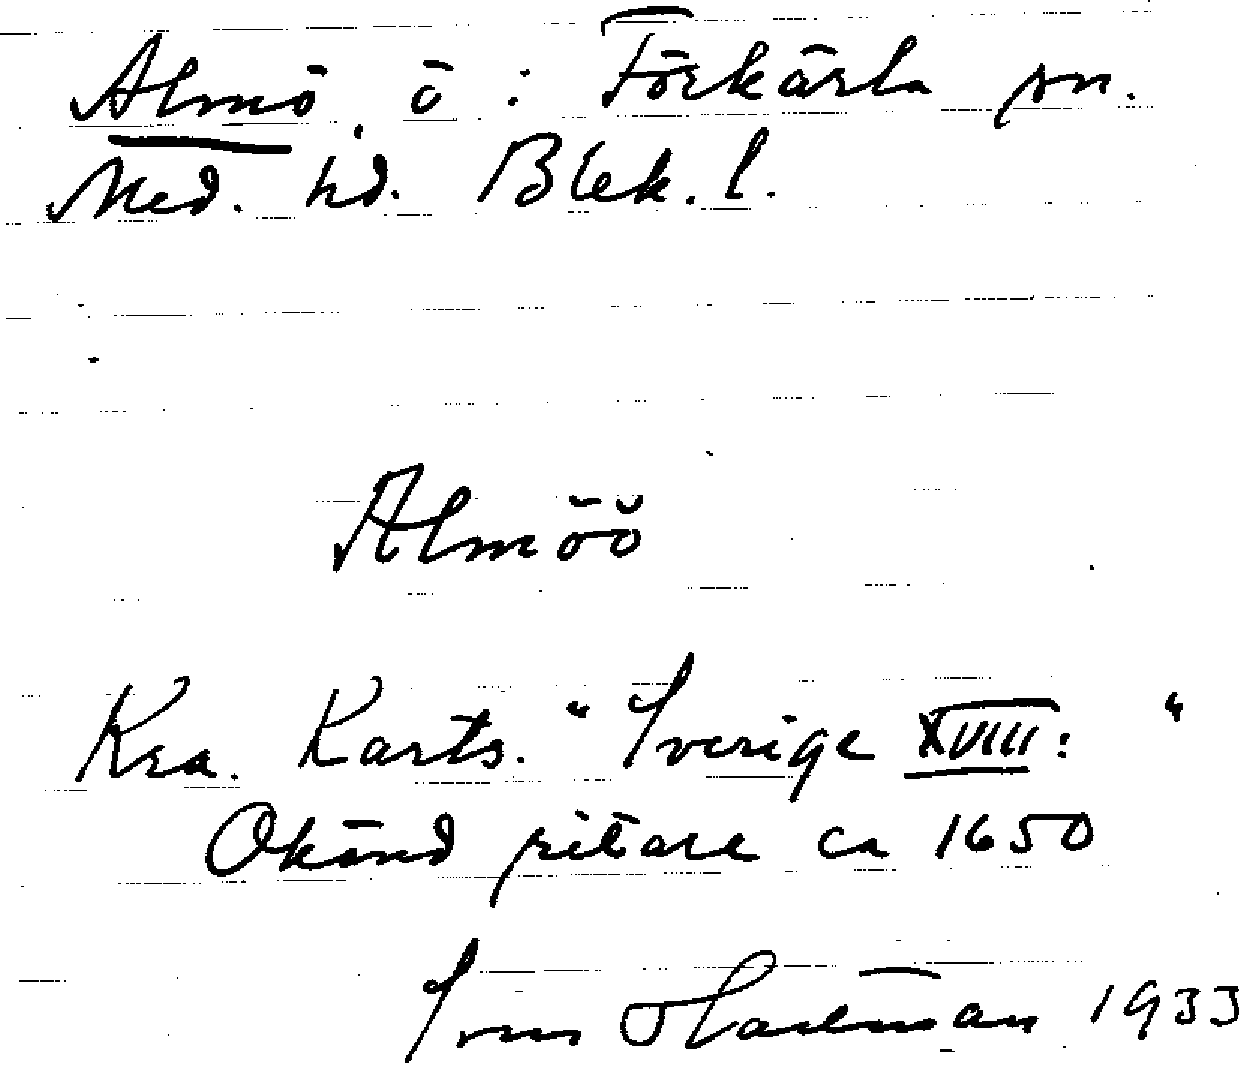 Almö, ö i Förkärla sn.
Med. hd. Blek. l.
Almöö
Kra. Karts. "Sverige XVIII: "
Okänd ritare ca 1650
1933